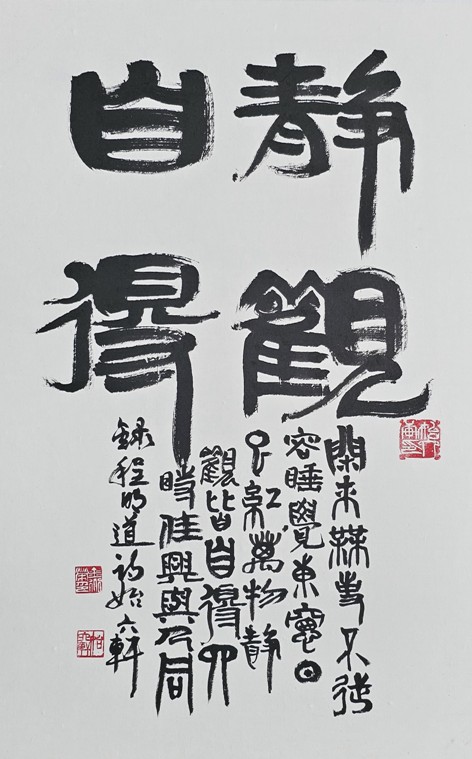 静觀
自得
閑来無事不從
容睡覺東窗日
已紅萬物静
觀皆自得四
時佳興與人同
録程明道詩